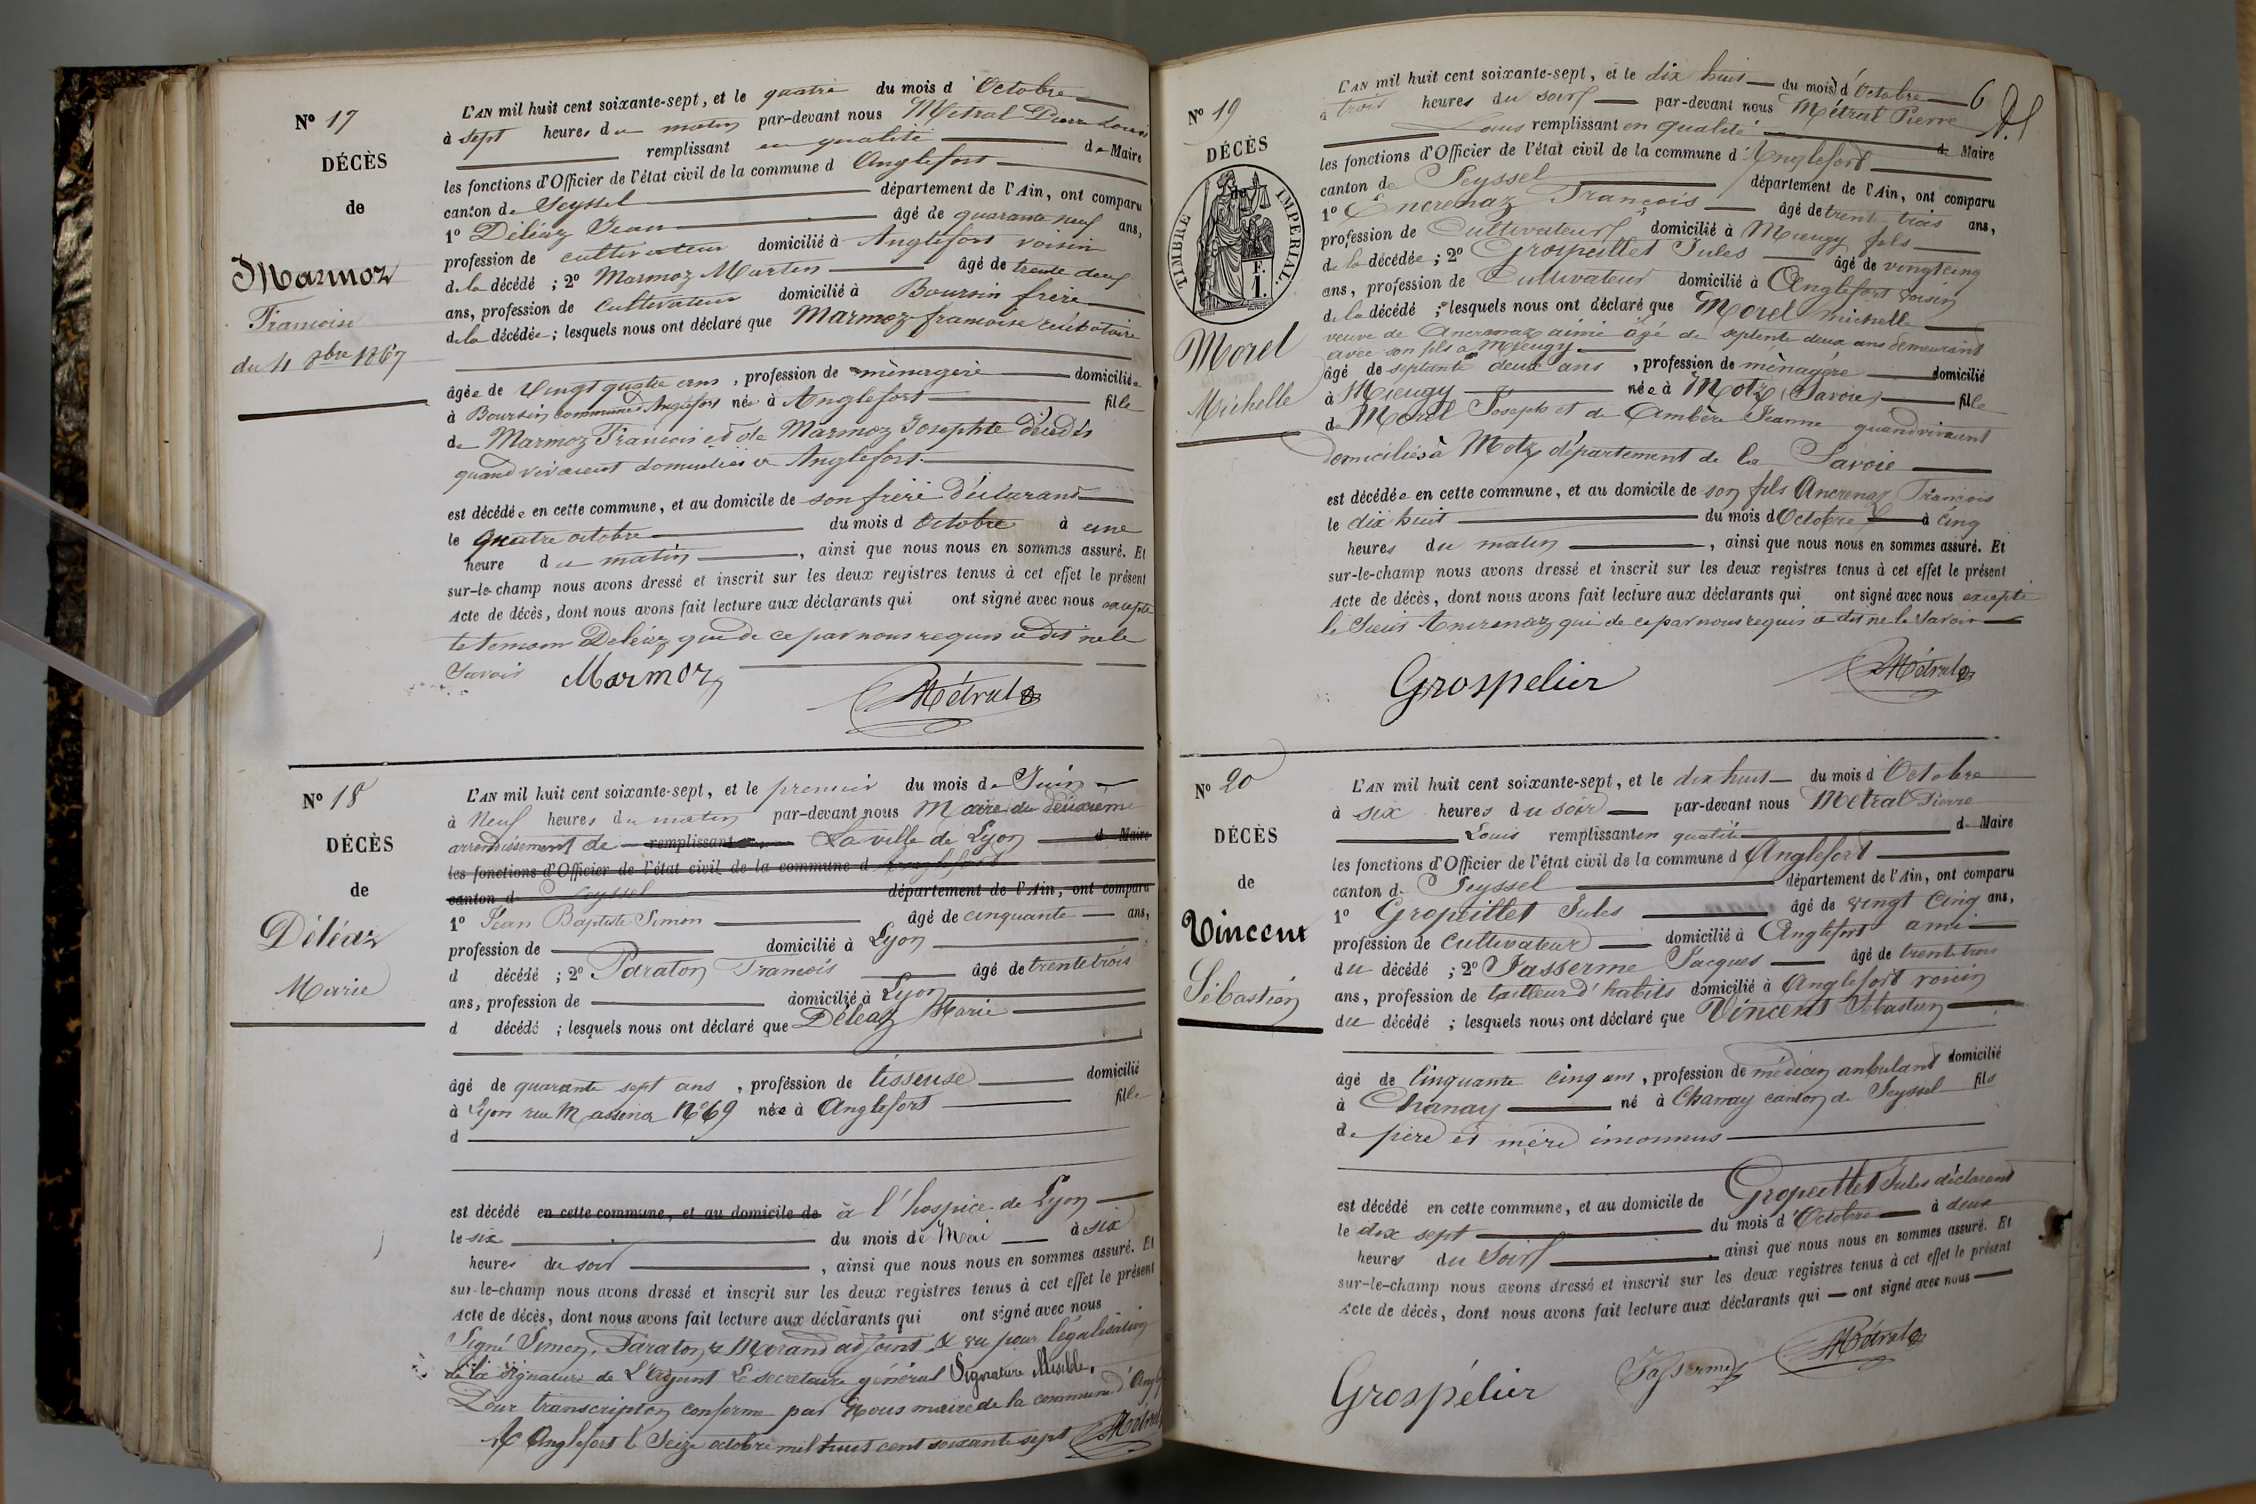 N° 17
DÉCÈS
de
Marmoz
Francoise
du 4 8bre 1867
L'AN mil huit cent soixante-sept, et le quatre du mois d'Octobre
à sept heures du matin par-devant nous Métral Pierre Louis
remplissant en qualité de Maire
les fonctions d'Officier de l'état civil de la commune d Anglefort
canton de Seyssel département de l'Ain, ont comparu
1° Déléaz Jean âgé de quarante neuf ans,
profession de cultivateur domicilié à Anglefort voisin
de la décédé ; 2° Marmoz Martin âgé de trente deux
ans, profession de cultivateur domicilié à Boursin frère
de la décédée ; lesquels nous ont déclaré que Marmoz francoise célibataire
âgée de Vingt quatre ans, profession de ménagère domiciliée
à Boursin commune Anglefort née à Anglefort fille
de Marmoz Francois et de Marmoz Josephte décédés
quand vivaient domiciliés à Anglefort
est décédée en cette commune, et au domicile de son frère déclarant
le quatre octobre du mois d Octobre à une
heure du matin, ainsi que nous nous en sommes assuré. Et
sur-le-champ nous avons dressé et inscrit sur les deux registres tenus à cet effet le présent
Acte de décès, dont nous avons fait lecture aux déclarants qui ont signé avec nous excepté
le temoin Deléaz qui de ce par nous requis a dit ne le
Savoir Marmoz
Métral
N° 18
DÉCÈS
de
Déléaz
Marie
L'AN mil huit cent soixante-sept, et le premier du mois de Juin
à Neuf heures du matin par-devant nous Maire du deuxieme
arrondissement de remplissant La ville de Lyon de Maire
les fonctions d'Officier de l'état civil de la commune d Anglefort
canton d Seyssel département de l'Ain, ont comparu
1° Jean Baptiste Simon âgé de cinquante ans,
profession de domicilié à Lyon
d décédé ; 2° Paraton Francois âgé de trente trois
ans, profession de domicilié à Lyon
d décédé ; lesquels nous ont déclaré que Déléaz Marie
âgé de quarante sept ans, profession de tisseuse domicilié
à Lyon rue Massena N°69 née à Anglefort fille
d
est décédé en cette commune, et au domicile de à l'hospice de Lyon
le six du mois de Mai à six
heures du soir, ainsi que nous nous en sommes assuré. Et
sur-le-champ nous avons dressé et inscrit sur les deux registres tenus à cet effet le présent
Acte de décès, dont nous avons fait lecture aux déclarants qui ont signé avec nous
Signé Simon, Paraton & Morand adjoint & vu pour légalisation
de la signature de L'Adjoint Le secretaire général Signature illisible,
Pour transcription conforme par Nous maire de la commune d'Angl
A Anglefort le Seize octobre mil huit cent soixante sept Métral
6
N° 19
DÉCÈS
de
TIMBRE IMPERIAL
F.
1.
Morel
Michelle
L'AN mil huit cent soixante-sept, et le dix huit du mois d'Octobre
à trois heures du soir par-devant nous Métral Pierre
Louis remplissant en qualité de Maire
les fonctions d'Officier de l'état civil de la commune d'Anglefort
canton de Seyssel département de l'Ain, ont comparu
1° Encrenaz François âgé de trent trois ans,
profession de Cultivateur domicilié à Mieugy fils
de la décédée ; 2° Grospeillet Jules âgé de vingt cinq
ans, profession de Cultivateur domicilié à Anglefort voisin
de la décédé ; lesquels nous ont déclaré que Morel michelle
veuve de Ancrenaz aimé âgé de septente deux ans demeurant
avec son fils a Mieugy
âgé de septante deux ans, profession de ménagère domicilié
à Mieugy née à Motz (Savoie) fille
de Morel Joseph et de Cambère Jeanne quand vivaient
domiciliés à Motz département de la Savoie
est décédée en cette commune, et au domicile de son fils Ancrenaz François
le dix huit du mois d Octobre à cinq
heures du matin, ainsi que nous nous en sommes assuré. Et
sur-le-champ nous avons dressé et inscrit sur les deux registres tenus à cet effet le présent
Acte de décès, dont nous avons fait lecture aux déclarants qui ont signé avec nous excepté
le Sieur Ancrenaz qui de ce par nous requis a dit ne le Savoir
Grospelier Métral
N° 20
DÉCÈS
de
Vincent
Sébastien
L'AN mil huit cent soixante-sept, et le dix huit du mois d'Octobre
à six heures du soir par-devant nous Métral Pierre
Louis remplissant en qualité de Maire
les fonctions d'Officier de l'état civil de la commune d Anglefort
canton de Seyssel département de l'Ain, ont comparu
1° Gropeillet Jules âgé de vingt cinq ans,
profession de cultivateur domicilié à Anglefort ami
du décédé ; 2° Jasserme Jacques âgé de trent trois
ans, profession de tailleur d'habits domicilié à Anglefort voisin
du décédé ; lesquels nous ont déclaré que Vincent Sébastien
âgé de Cinquante cinq ans, profession de médecin anbulant domicilié
à Chanay né à Chanay canton de Seyssel fils
de père et mère inconnus
est décédé en cette commune, et au domicile de Gropeillet Jules déclarant
le dix sept du mois d'Octobre à deux
heures du Soir, ainsi que nous nous en sommes assuré. Et
sur-le-champ nous avons dressé et inscrit sur les deux registres tenus à cet effet le présent
Acte de décès, dont nous avons fait lecture aux déclarants qui ont signé avec nous
Grospélier Jasserme Métral